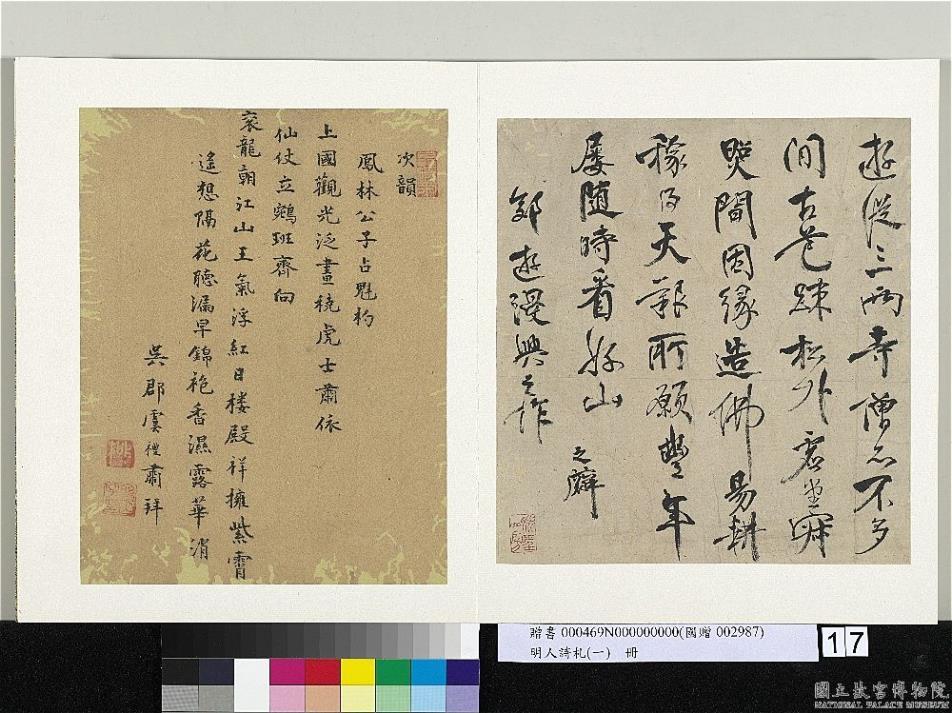 遊從三兩寺僧名不多
閒古巷疎松外空堂寂
閴間因緣造佛易耕
稼得天艱所願豐年
屡隨時看好山
之癖
郊遊漫興之作
次韻
鳳林公子占魁杓
上國觀光泛畫橈虎士肅依
仙仗立鵷班齊向
衮龍朝江山王氣浮紅日楼殿祥擁紫霄
遙想隔花聽漏早錦袍香濕露華消
吳郡虞禮肅拜
贈書 000469N000000000(國贈 002987)
明人詩札(一) 冊
17
國立故宮博物院
NATIONAL PALACE MUSEUM